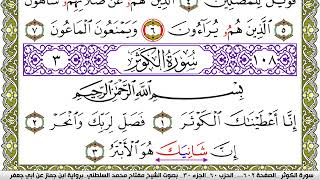 فَوَيْلٌ لِّلْمُصَلِّينَ ٤ الَّذِينَ هُمُۥ عَن صَلَاتِهِمُۥ سَاهُونَ
٥ الَّذِينَ هُمُۥ يُرَآءُونَ ٦ وَيَمْنَعُونَ الْمَاعُونَ ٧
١٠٨ سُورَةُ الْكَوْثَرِ ٣
بِسْمِ اللَّهِ الرَّحْمَٰنِ الرَّحِيمِ
إِنَّا أَعْطَيْنَاكَ الْكَوْثَرَ ١ فَصَلِّ لِرَبِّكَ وَانْحَرْ ٢
إِنَّ شَانِيَكَ هُوَ الْأَبْتَرُ ٣
سورة الكوثر الصفحة ٦٠٢... الحزب ٦٠ الجزء ٣٠ بصوت الشيخ مفتاح محمد السلطني برواية ابن جماز عن أبي جعفر